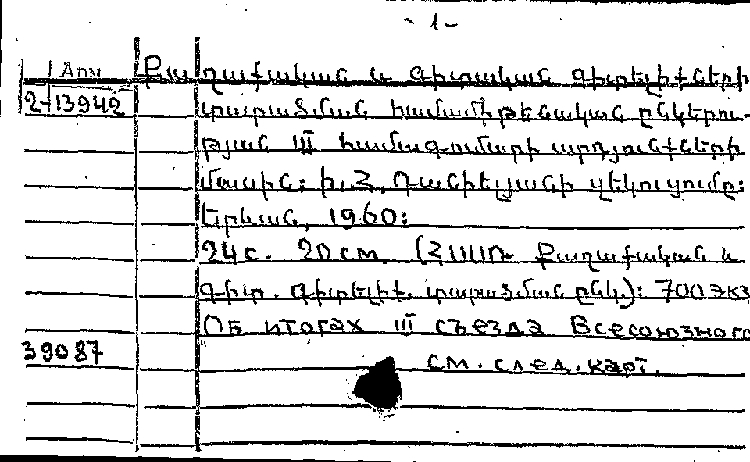 - 1 -
Арм Քաղաքական և գիտական գիտելիքների
2-13942 տարածման համամիութենական ընկերու-
թյան III համագումարի արդյունքների
մասին: Խ. Հ. Դանիելյանի զեկուցումը:
Երևան, 1960:
24 с. 20 см. (ՀՍՍՌ Քաղաքական և
գիտ. գիտելիք. տարածման ընկ.): 700 экз
Об итогах III съезда Всесоюзного
39087 см. след. карт.